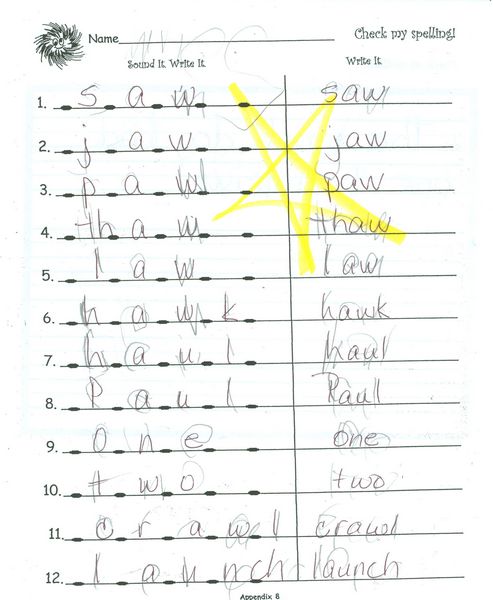 Name Check my spelling!
Sound It. Write It. Write It.
1. s a w saw
2. j a w jaw
3. p a w paw
4. th a w thaw
5. l a w law
6. h a w k hawk
7. h a u l haul
8. P a u l Paul
9. o n e one
10. t w o two
11. c r a w l crawl
12. l a u n ch launch
Appendix 8